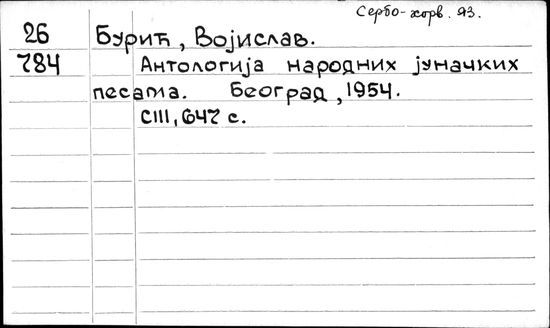 Сербо-хорв. яз.
26 Бурић, Војислав.
784 Антологија народних јуначких
песама. Београд, 1954.
CIII, 647 с.